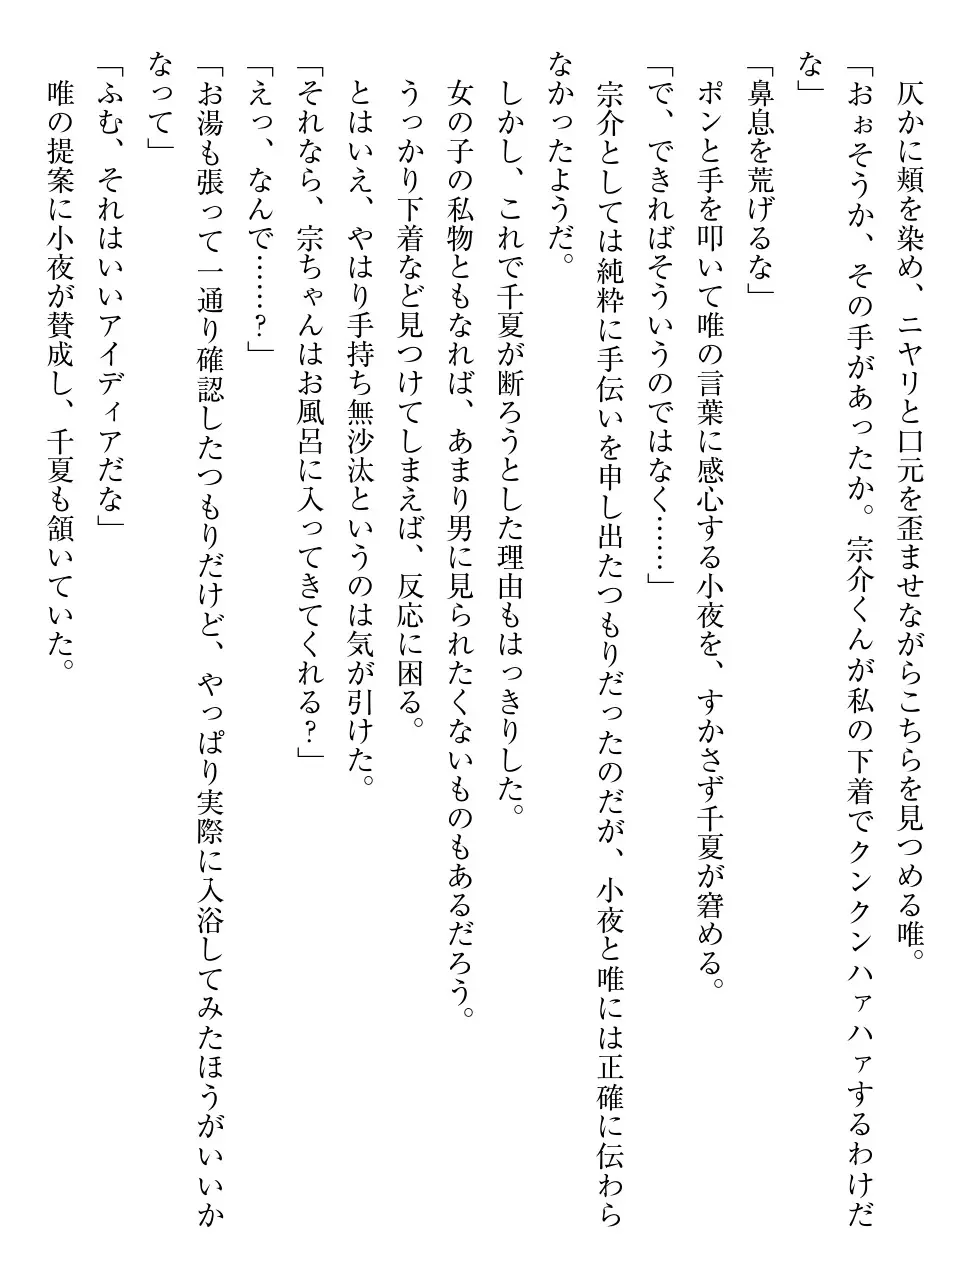 仄かに頬を染め、ニヤリと口元を歪ませながらこちらを見つめる唯。
「おぉそうか、その手があったか。宗介くんが私の下着でクンクンハァハァするわけだ
な」
「鼻息を荒げるな」
　ポンと手を叩いて唯の言葉に感心する小夜を、すかさず千夏が窘める。
「で、できればそういうのではなく……」
　宗介としては純粋に手伝いを申し出たつもりだったのだが、小夜と唯には正確に伝わら
なかったようだ。
　しかし、これで千夏が断ろうとした理由もはっきりした。
　女の子の私物ともなれば、あまり男に見られたくないものもあるだろう。
　うっかり下着など見つけてしまえば、反応に困る。
　とはいえ、やはり手持ち無沙汰というのは気が引けた。
「それなら、宗ちゃんはお風呂に入ってきてくれる？」
「えっ、なんで……？」
「お湯も張って一通り確認したつもりだけど、やっぱり実際に入浴してみたほうがいいか
なって」
「ふむ、それはいいアイディアだな」
　唯の提案に小夜が賛成し、千夏も頷いていた。